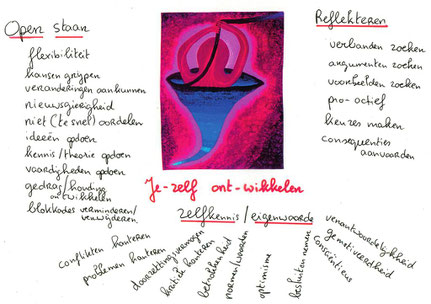 Open staan
flexibiliteit
kansen grijpen
veranderingen aankunnen
nieuwsgierigheid
niet (te snel) oordelen
ideeën opdoen
kennis/theorie opdoen
vaardigheden opdoen
gedrag/houding
ontwikkelen
blokkades verminderen/
verwijderen
Reflekteren
verbanden zoeken
argumenten zoeken
voorbeelden zoeken
pro-actief
keuzes maken
consequenties
aanvaarden
Je-zelf ont-wikkelen
zelfkennis/eigenwaarde
conflikten hanteren
problemen hanteren
doorzettingsvermogen
kritiek hanteren
betrokkenheid
normen/waarden
optimisme
besluiten nemen
consciëntieus
gemotiveerdheid
verantwoordelijkheid